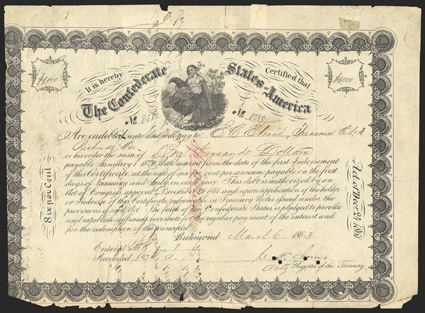 $1000
$1000
It is hereby Certified that
The Confederate States of America
No 8510 No 8510
Are indebted unto and will pay to E. C. Elmore, Treasurer
or order the sum of One Thousand Dollars
payable January 1st 187 with interest from the date of the first Endorsement
of this Certificate, at the rate of six per cent per annum payable on the first
days of January and July in each year. This debt is authorized by an
Act of Congress approved December 24th 1861 and upon application of the holder
or Indorsee of this Certificate is payable in Treasury Notes issued under the
provisions of said Act. The faith of the Confederate States is pledged to provide
and establish sufficient revenues for the regular payment of the interest and
for the redemption of the principal
Richmond March 6 1863
Entered
Recorded
Register of the Treasury
Six per Cent
Act of Decr 24th 1861